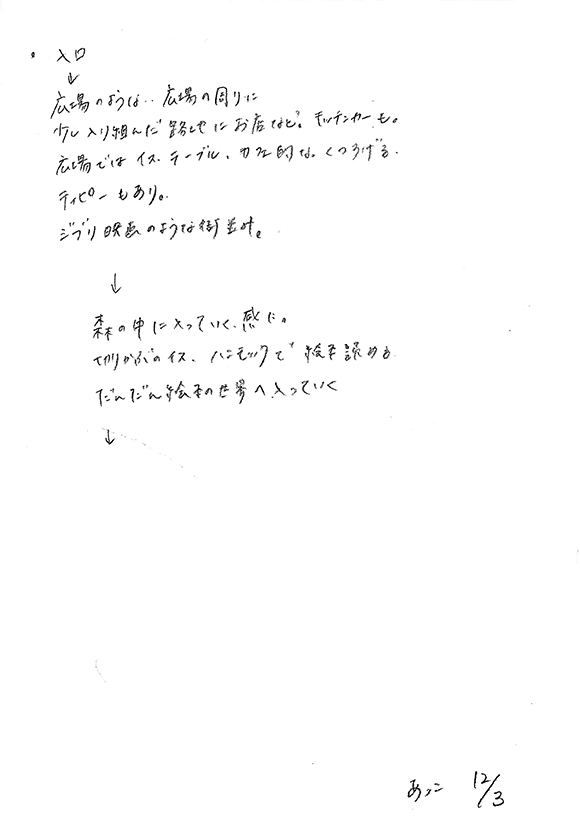 ・ 入口
↓
広場のような‥広場の周りに
少し入り組んだ路地にお店など。キッチンカーも。
広場ではイス、テーブル、カフェ的な。くつろげる。
ティピーもあり。
ジブリ映画のような街並み。
↓
森の中に入っていく感じ。
切りかぶのイス、ハンモックで絵本読める
だんだん絵本の世界へ入っていく
↓
あっこ 12/3